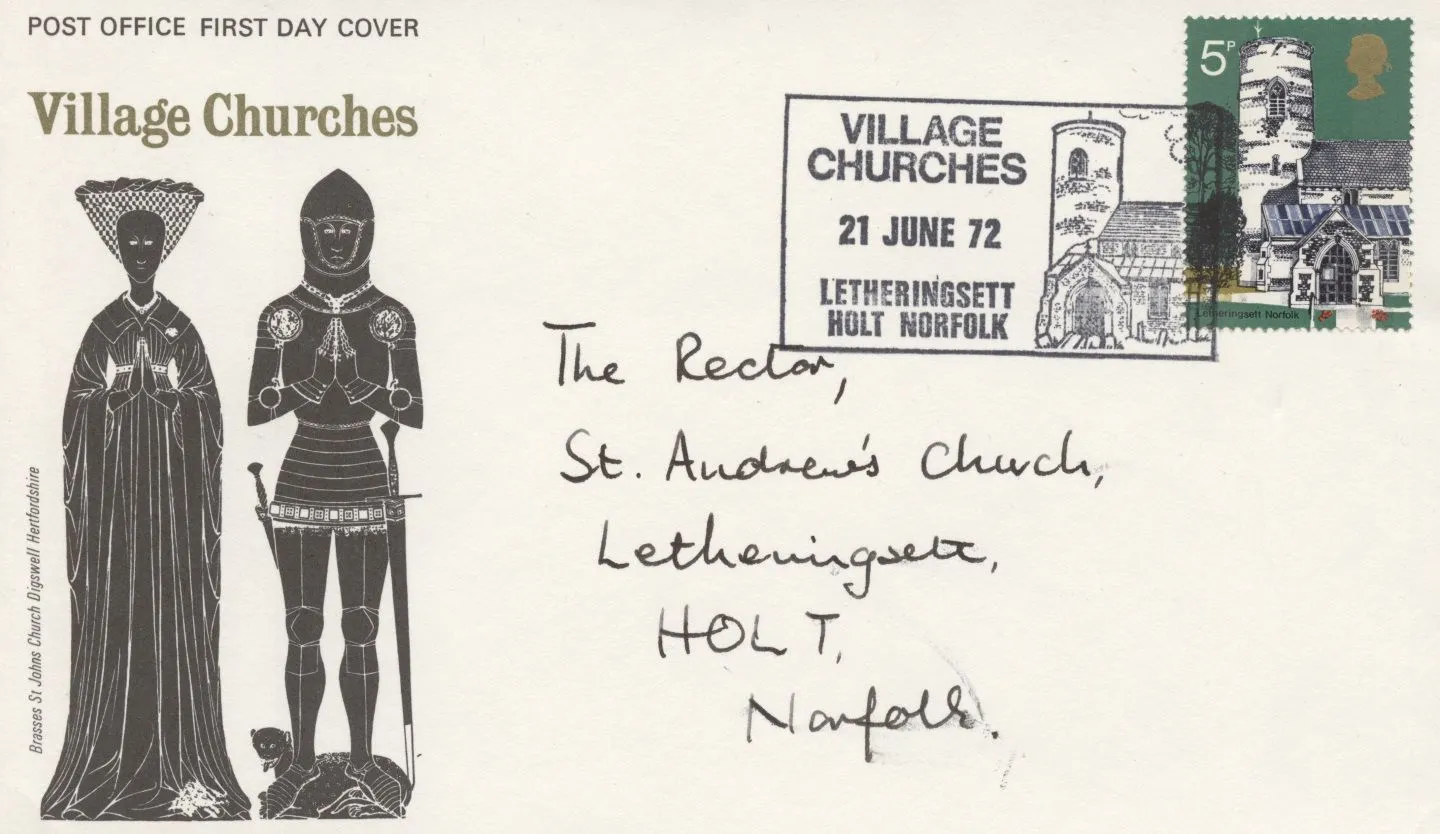 POST OFFICE FIRST DAY COVER
Village Churches
Brasses St Johns Church Digswell Hertfordshire
VILLAGE
CHURCHES
21 JUNE 72
LETHERINGSETT
HOLT NORFOLK
5P
Letheringsett Norfolk
The Rector,
St. Andrew's Church,
Letheringsett,
HOLT,
Norfolk.